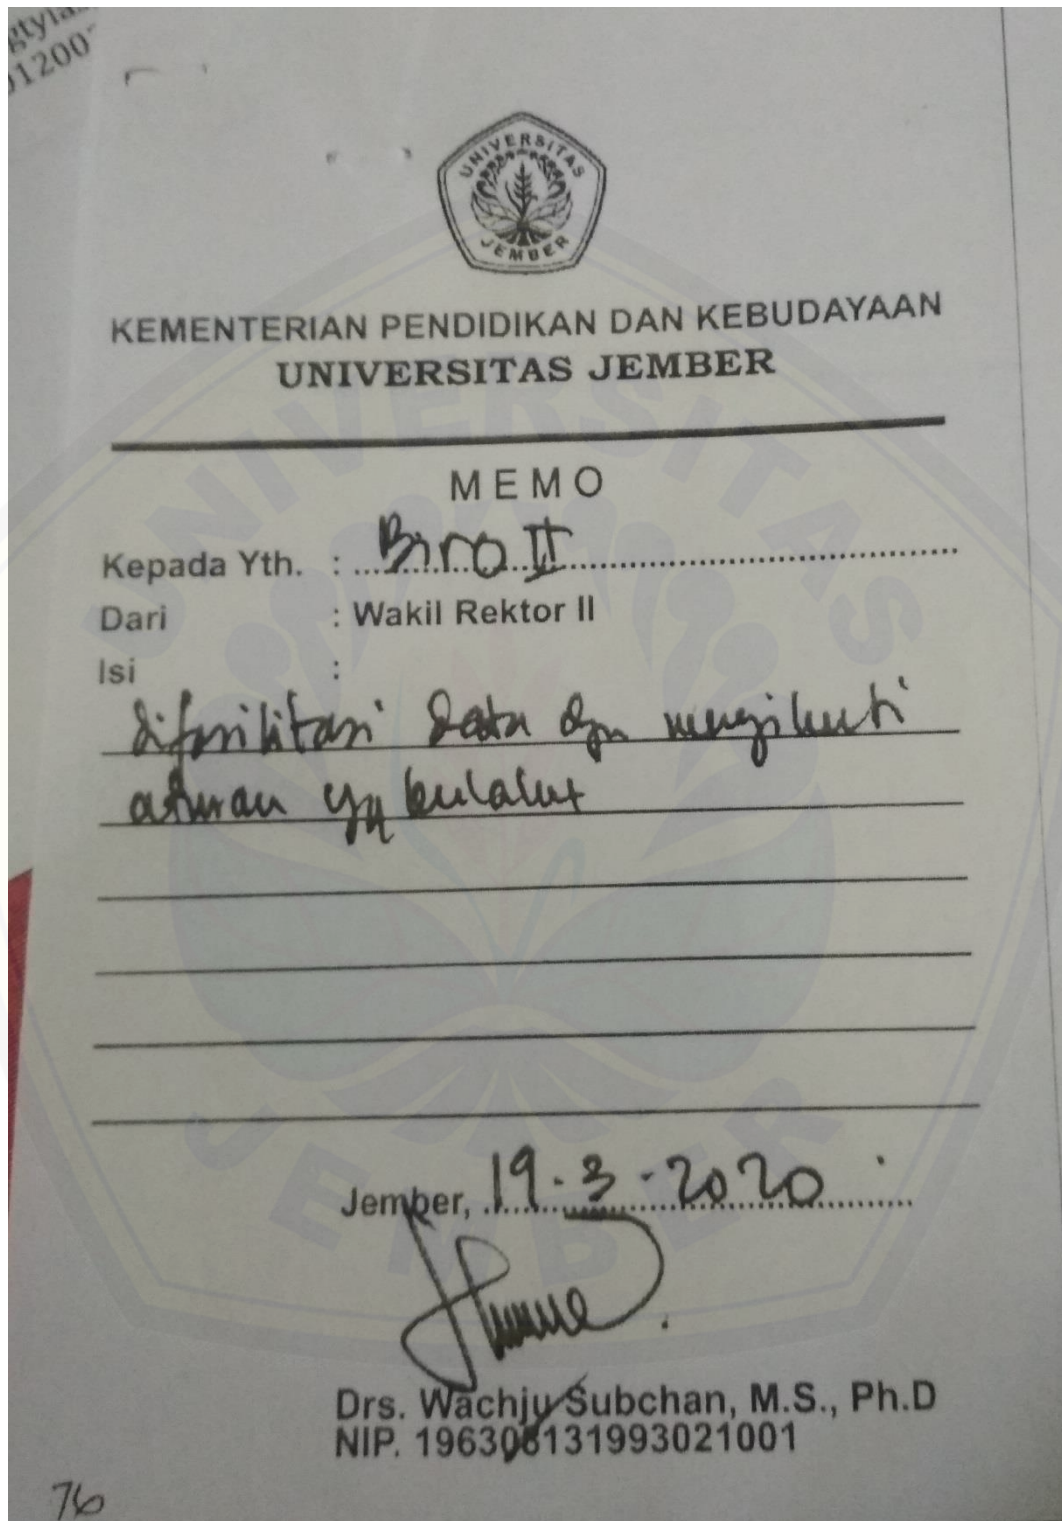 gtyla
01200
UNIVERSITAS
JEMBER
KEMENTERIAN PENDIDIKAN DAN KEBUDAYAAN
UNIVERSITAS JEMBER
MEMO
Kepada Yth. : Biro II
Dari : Wakil Rektor II
Isi :
difasilitasi data dgn mengikuti
aturan yg berlaku
Jember, 19-3-2020
Drs. Wachju Subchan, M.S., Ph.D
NIP. 196308131993021001
76